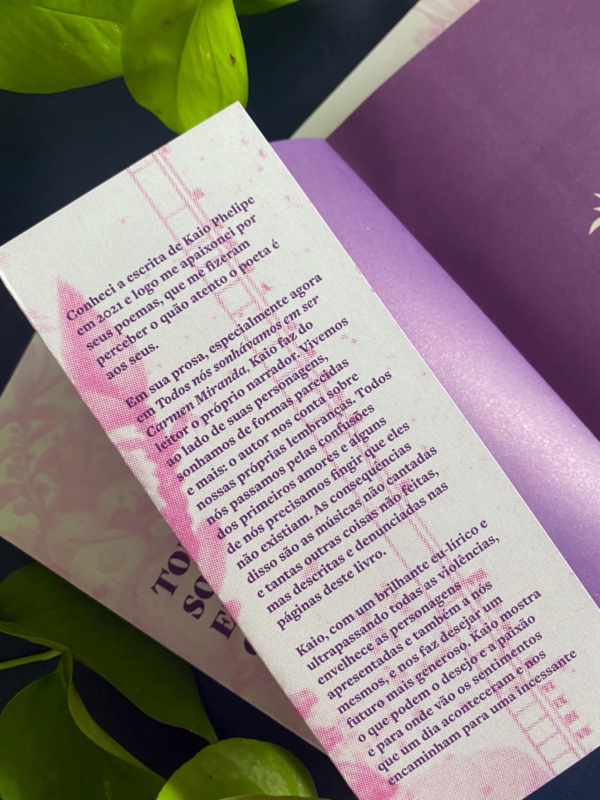 Conheci a escrita de Kaio Phelipe
em 2021 e logo me apaixonei por
seus poemas, que me fizeram
perceber o quão atento o poeta é
aos seus.
Em sua prosa, especialmente agora
em Todos nós sonhávamos em ser
Carmen Miranda, Kaio faz do
leitor o próprio narrador. Vivemos
ao lado de suas personagens,
sonhamos de formas parecidas
e mais: o autor nos conta sobre
nossas próprias lembranças. Todos
nós passamos pelas confusões
dos primeiros amores e alguns
de nós precisamos fingir que eles
não existiam. As consequências
disso são as músicas não cantadas
e tantas outras coisas não feitas,
mas descritas e denunciadas nas
páginas deste livro.
Kaio, com um brilhante eu-lírico e
ultrapassando todas as violências,
envelhece as personagens
apresentadas e também a nós
mesmos, e nos faz desejar um
futuro mais generoso. Kaio mostra
o que podem o desejo e a paixão
e para onde vão os sentimentos
que um dia aconteceram e nos
encaminham para uma incessante
TO
SO
E